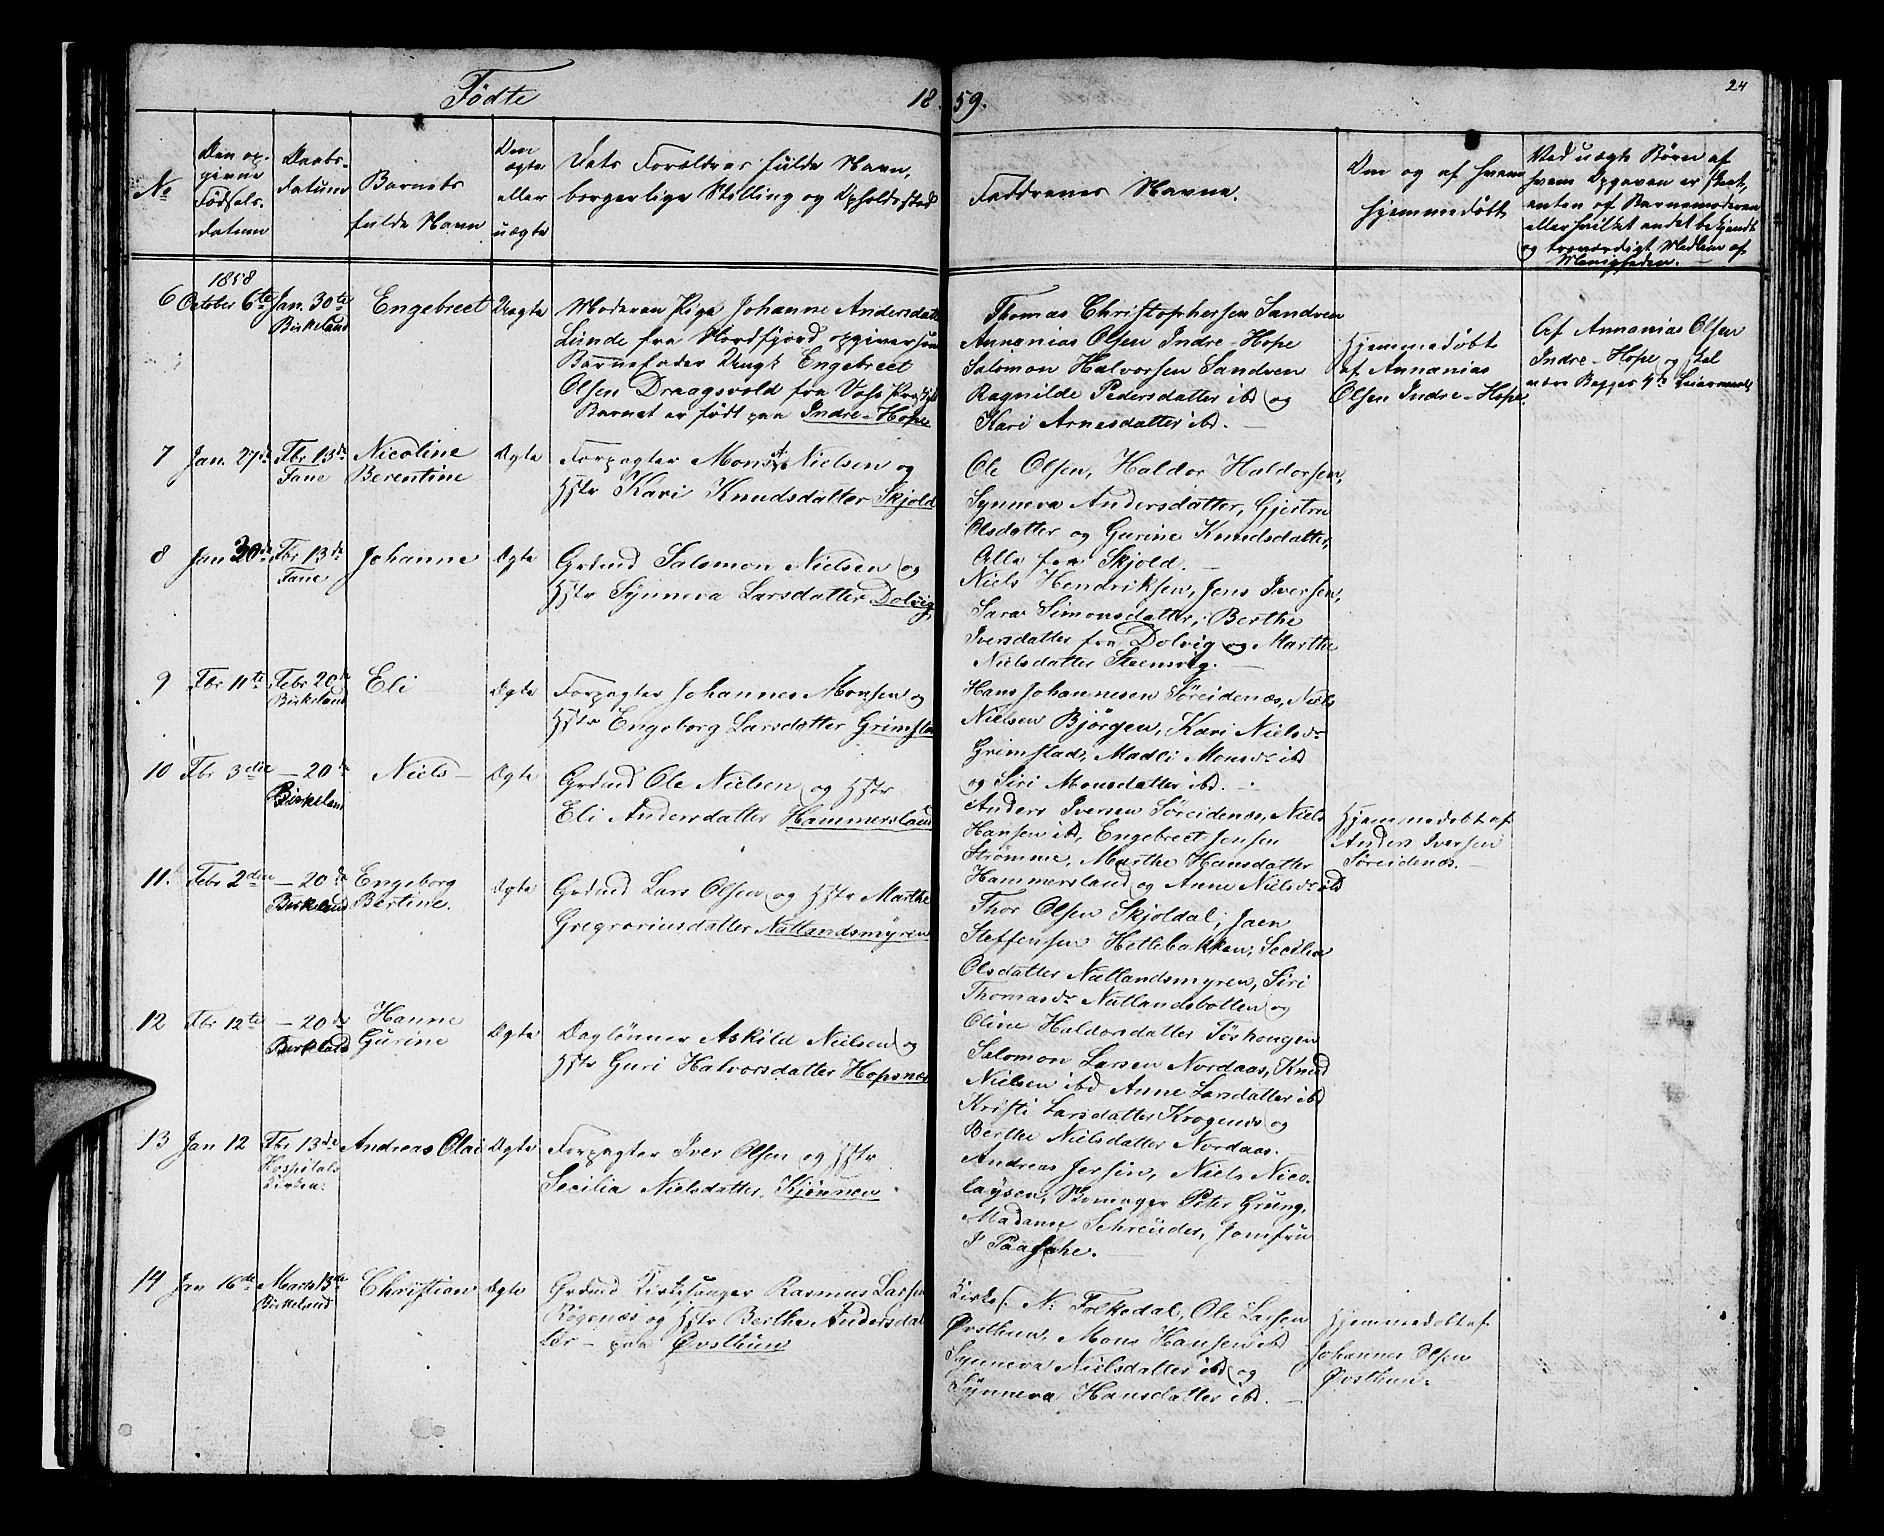 Födte 1859. 24
No
Den op-
givne
Fødsels-
datum
Daabs-
datum
Barnets
fulde Navn
Om
ægte
eller
uægte
Dets Forældres fulde Navn,
borgerlige Stilling og Opholdssted
Faddrenes Navne.
Om og af hvem
hjemmedøbt
Ved uægte Børn af
hvem Opgaven er skeet,
enten af Barnemoderen
eller hvilket andet bekjendt
og troværdigt Medlem af
Menigheden.
1858
6 October 6te Jan. 30te
Birkeland
Engebreet Uægte
Moderen Pige Johanne Andersdatt
Lunde fra Nordfjord opgiver som
Barnefader Ungk Engebreet
Olsen Draagsvold fra Vos
Barnet er født paa Indre-Hope
Thomas Christophersen Sandven
Annanias Olsen Indre-Hope
Salomon Halvorsen Sandven
Ragnilde Pedersdatter ibd og
Kari Arnesdatter ibd.
Hjemmedøbt
af Annanias
Olsen Indre-Hope.
Af Annanias Olsen
Indre-Hope og skal
være Begges Leiermaal
7 Jan. 27de Fbr 13de
Fane
Nicoline
Berentine
Ægte
Forpagter Mons Nielsen og
Hstr Kari Knudsdatter Skjold
Ole Olsen, Haldor Haldorsen,
Synneva Andersdatter, Gjertru
Olsdatter og Gurine Knudsdatter,
Alle fra Skjold.
8 Jan 30de Fbr 13de
Fane
Johanne Ægte
Grdmd Salomon Nielsen og
Hstr Synneva Larsdatter Dolvig
Niels Hendriksen, Jens Iversen,
Sara Simonsdatter, Berthe
Iversdatter fra Dolvig og Marthe
Nielsdatter Steensvig.
9 Fbr 11te Febr 20de
Birkeland
Eli Ægte
Forpagter Johannes Monsen og
Hstr Engeborg Larsdatter Grimsta
Hans Johannesen Søreidenæs, Niels
Nielsen Bjørgen, Kari Nielsdr
Grimstad, Madli Monsdr ibd
og Siri Monsdatter ibd.
10 Fbr 3die — 20de
Birkeland
Niels Ægte
Grdmd Ole Nielsen og Hstr
Eli Andersdatter Hammersland
Anders Iversen Søreidenæs, Niels
Hansen ibd, Engebreet Jensen
Strømme, Marthe Hansdatter
Hammersland og Anne Nielsdr ibd
Hjemmedøbt af
Anders Iversen
Søreidenæs.
11. Febr 2den — 20de
Birkeland
Engeborg
Bertine.
Ægte
Grdmd Lars Olsen og Hstr Marthe
Gregoriusdatter Natlandsmyren
Thor Olsen Skjoldal, Jaen
Steffensen Hetlebakken, Secilia
Olsdatter Natlandsmyren, Siri
Thomasdr Natlandsbotten og
Oline Haldorsdatter Tørhougen
12 Fbr 12te — 20de
Birkeland
Hanne
Gurine
Ægte
Daglønner Askild Nielsen og
Hstr Guri Halvorsdatter Hopsnæs
Salomon Larsen Nordaas, Knud
Nielsen ibd Anne Larsdatter ibd
Kristi Larsdatter Krogenes og
Berthe Nielsdatter Nordaas.
13 Jan 12 Fbr 13de
Hospitals
Kirken.
Andreas Olai Ægte
Forpagter Iver Olsen og Hstr
Secilia Nielsdatter Kjønnen
Andreas Jersin, Niels Nico-
laysen, Peter Grung,
Madame Schreuder, Jomfru
P Paasche.
14 Jan 16de Marts 13de
Birkeland
Christian Ægte
Grdmd Kirkesanger Rasmus Larsen
Røgenæs og Hstr Berthe Andersdat
ter — paa Øvsthun
Kirkes. N: Folkedal, Ole Larsen
Øvsthun, Mons Hansen ibd
Synneva Nielsdatter ibd og
Synneva Hansdatter ibd.
Hjemmedøbt af
Johannes Olsen
Øvsthun.